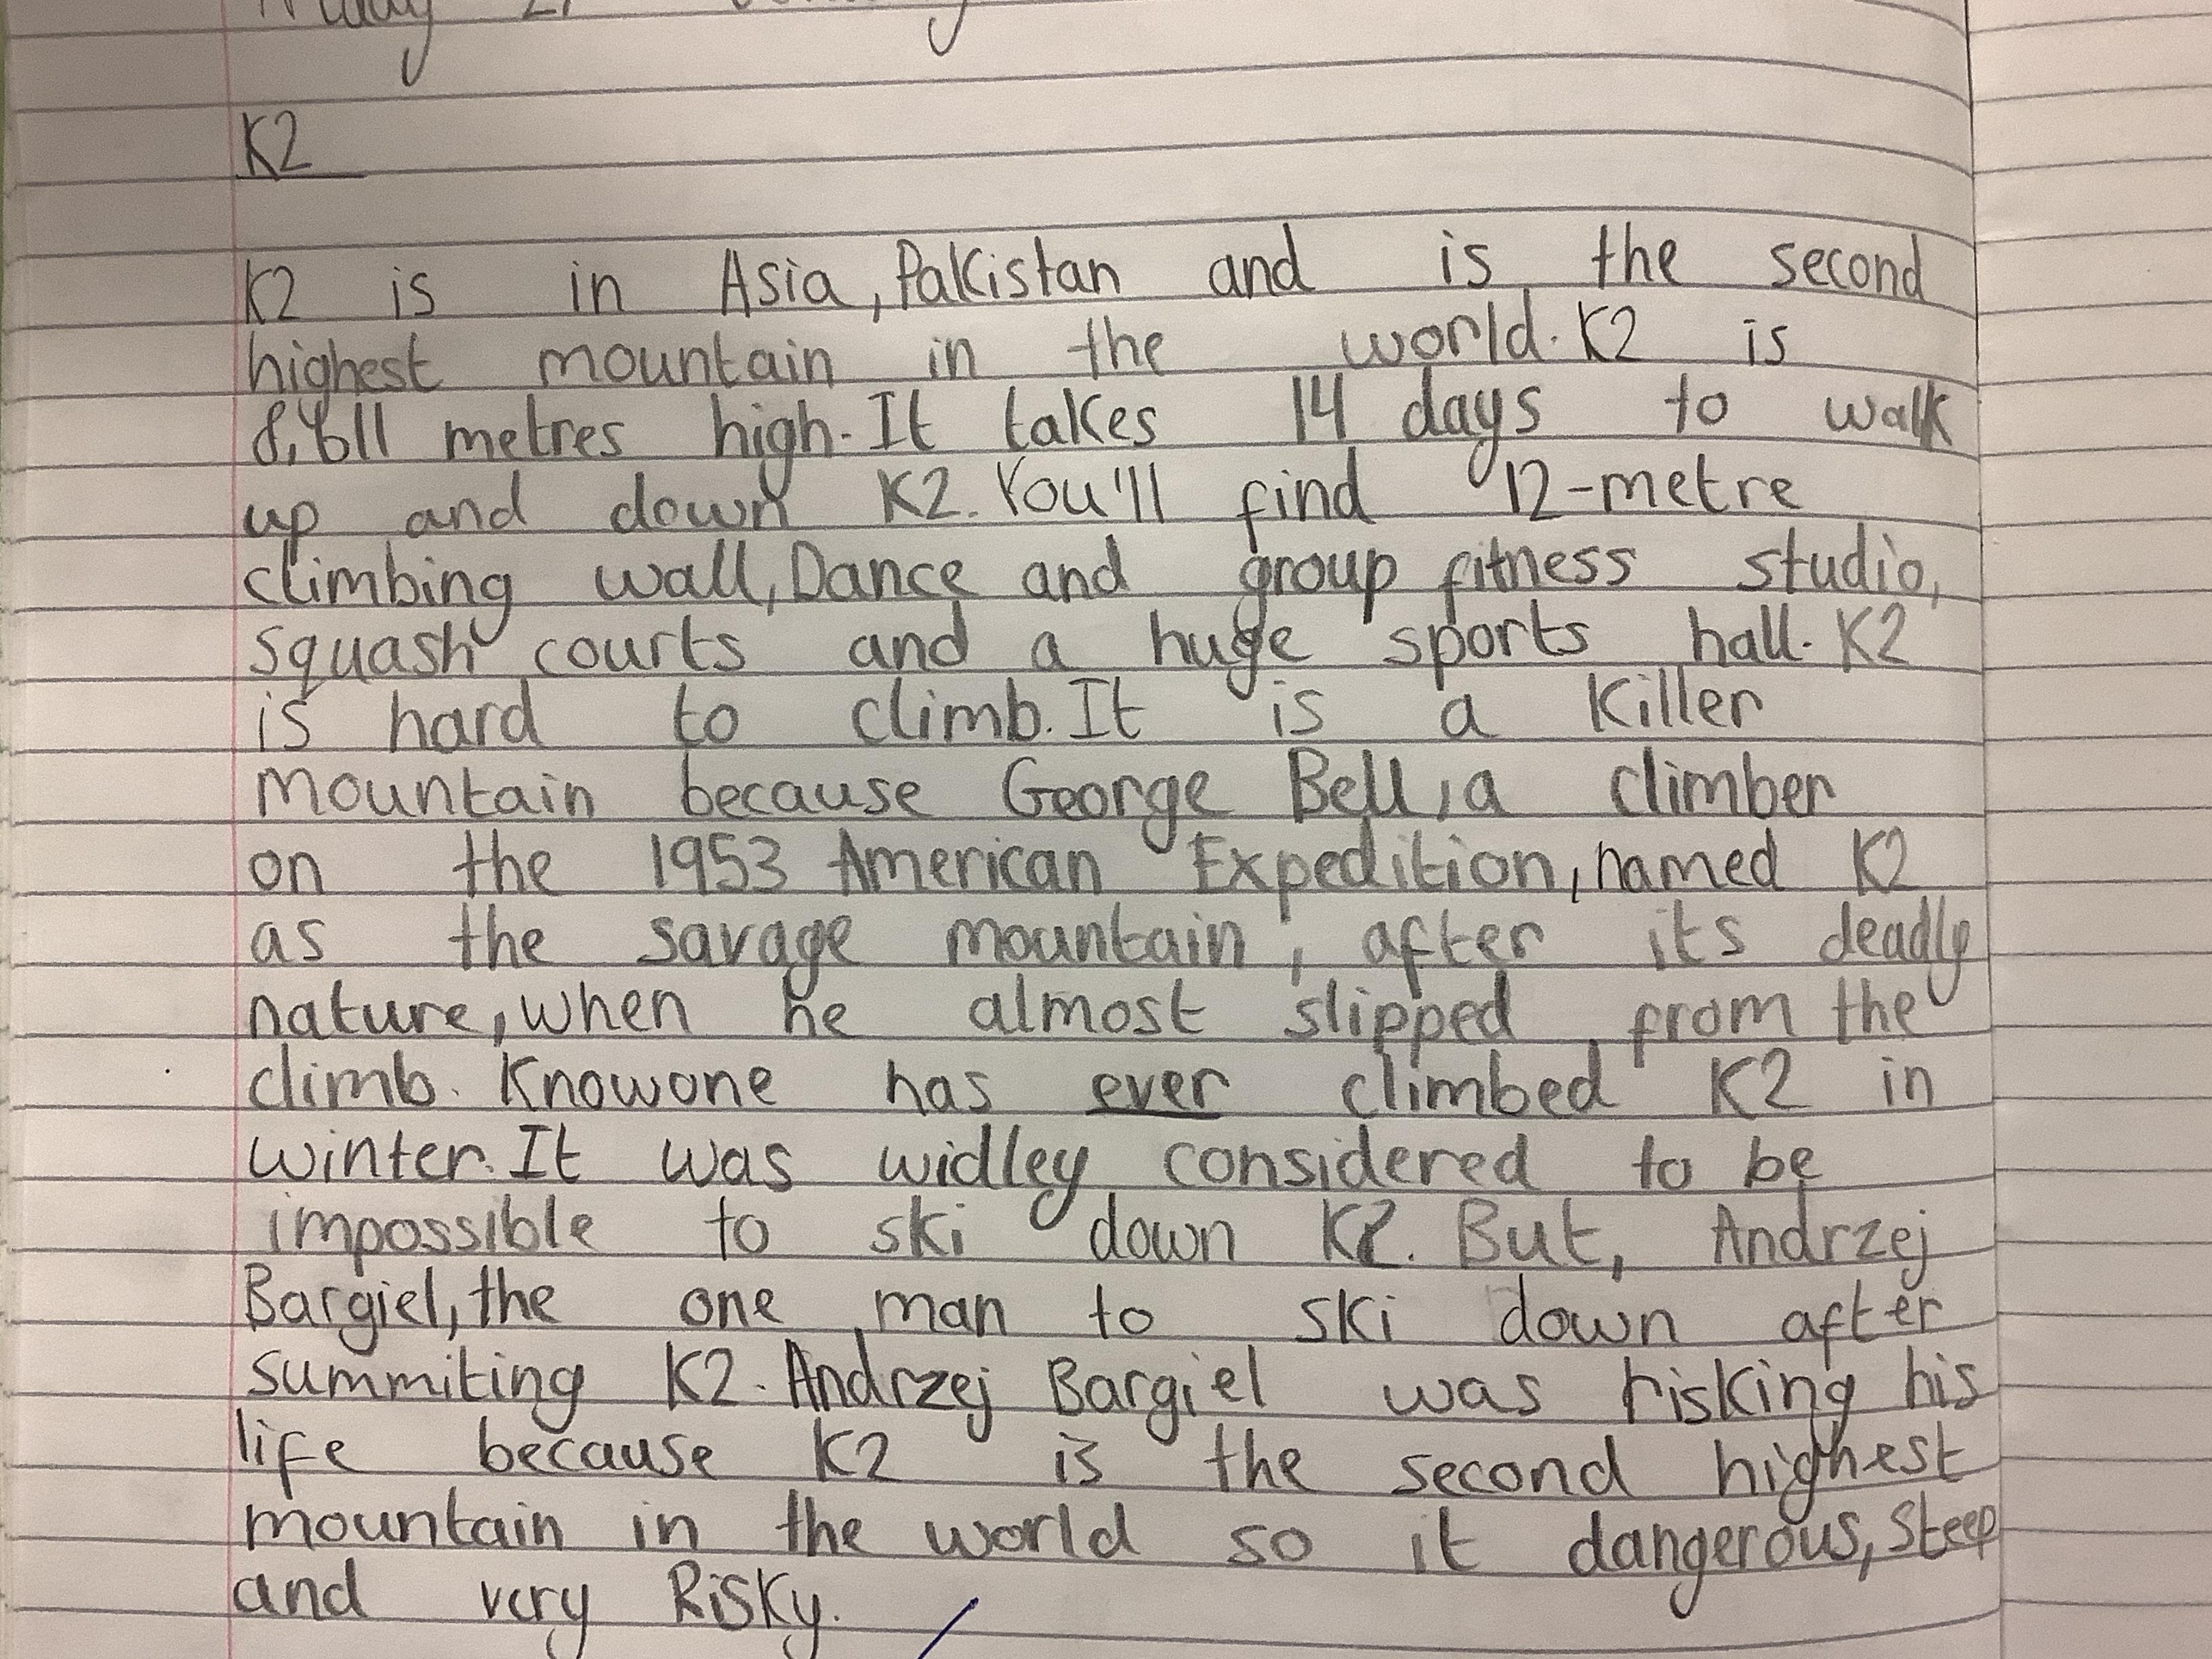 K2
K2 is in Asia, Pakistan and is the second
highest mountain in the world. K2 is
8,611 metres high. It takes 14 days to walk
up and down K2. You'll find 12-metre
climbing wall, Dance and group fitness studio,
squash courts and a huge sports hall. K2
is hard to climb. It is a killer
mountain because George Bell, a climber
on the 1953 American Expedition, named K2
as the savage mountain, after its deadly
nature, when he almost slipped from the
climb. Knowone has ever climbed K2 in
winter. It was widley considered to be
impossible to ski down K2. But, Andrzej
Bargiel, the one man to ski down after
summiting K2. Andrzej Bargiel was risking his
life because K2 is the second highest
mountain in the world so it dangerous, steep
and very Risky.